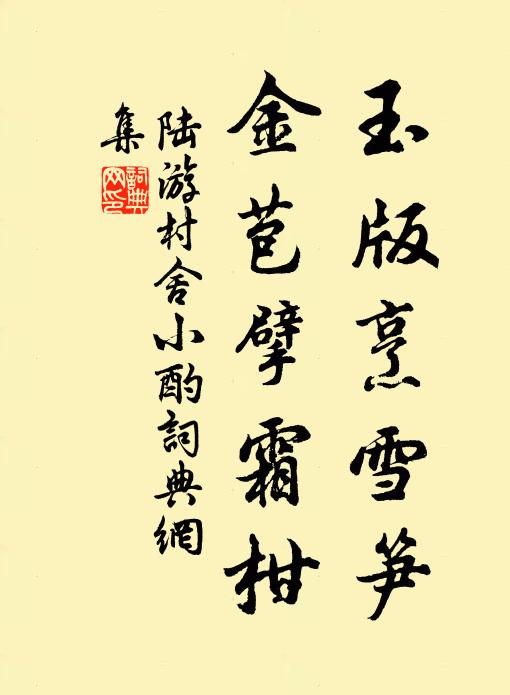 玉版烹雪笋
金苞擘霜柑
陆游村舍小酌詞典網
集
詞典網印